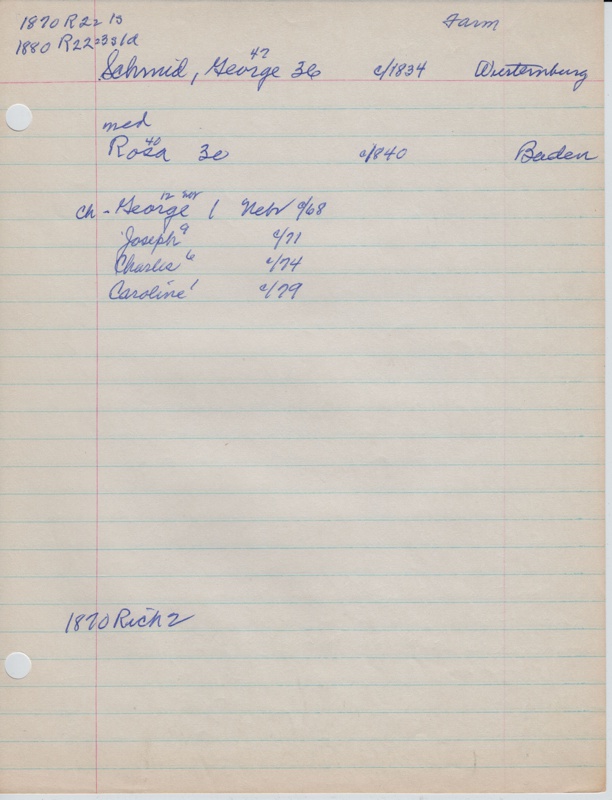 1870 R22 13 Farm
1880 R22=331d
47
Schmid, George 36 c/1834 Wurtemburg
med
40
Rosa 30 c/1840 Baden
12 nov
ch - George 1 Nebr c/68
Joseph 9 c/71
Charles 6 c/74
Caroline 1 c/79
1870 Rich 2